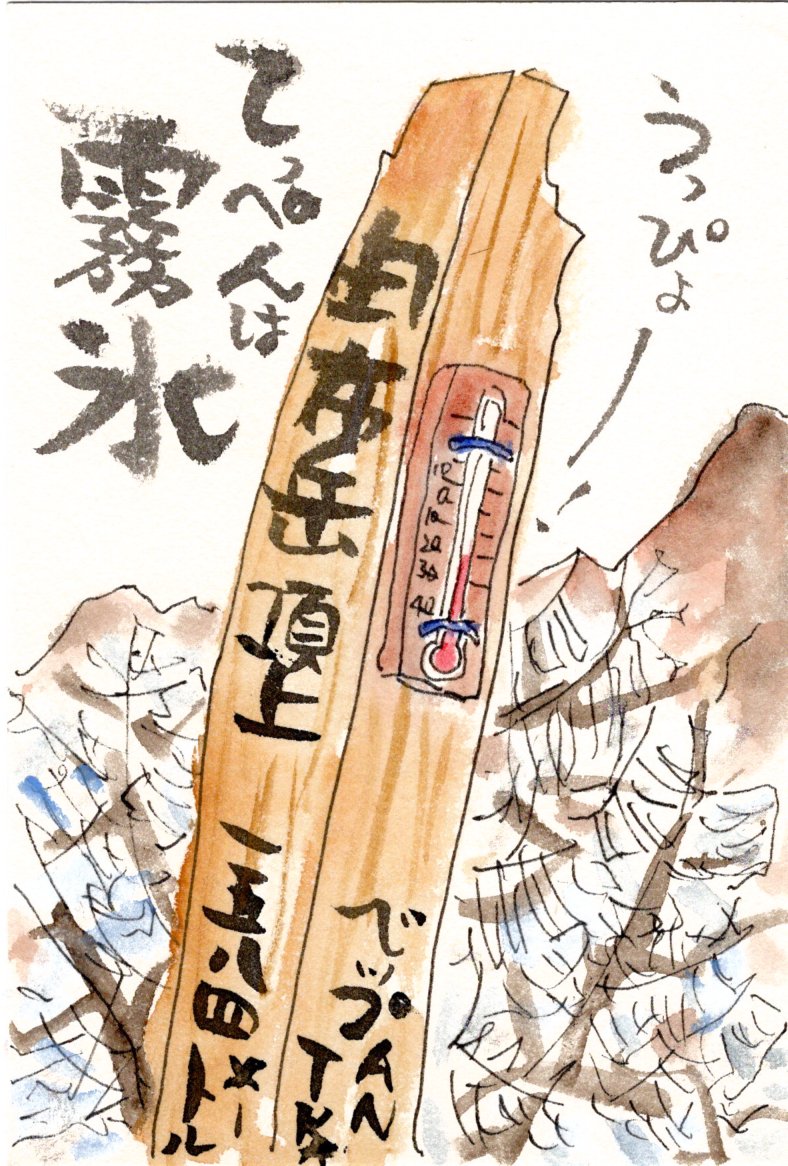 うっぴょー!
10
0
10
20
30
40
でっぷAN
由布岳頂上 一五八四メートル
てっぺんは
霧氷